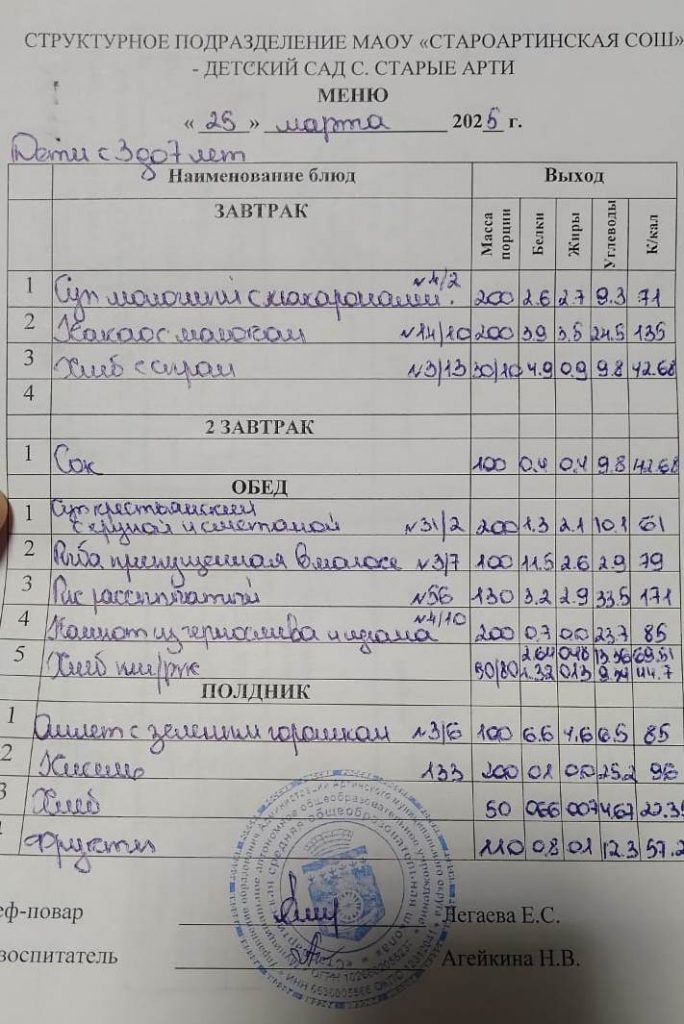 СТРУКТУРНОЕ ПОДРАЗДЕЛЕНИЕ МАОУ «СТАРОАРТИНСКАЯ СОШ»
- ДЕТСКИЙ САД С. СТАРЫЕ АРТИ
МЕНЮ
« 25 » марта 2025 г.
Дети с 3 до 7 лет
Наименование блюд Выход
ЗАВТРАК Масса порции Белки Жиры Углеводы К/кал
1 Суп молочный с макаронами. №4/2 200 2.6 2.7 9.3 71
2 Какао с молоком №14/10 200 3.9 3.5 24.5 135
3 Хлеб с сыром №3/13 30/10 4.9 0.9 9.8 42.68
4
2 ЗАВТРАК
1 Сок 100 0.4 0.4 9.8 42.68
ОБЕД
1 Суп крестьянский с крупой и сметаной №31/2 200 1.3 2.1 10.1 61
2 Рыба припущенная в молоке №3/7 100 11.5 2.6 2.9 79
3 Рис рассыпчатый №56 130 3.2 2.9 33.5 171
4 Компот из чернослива и изюма №4/10 200 0.7 0.0 23.7 85
5 Хлеб пш/рж 2.64 0.48 13.36 69.51
1.32 0.13 44.7
ПОЛДНИК
1 Омлет с зеленым горошком №3/6 100 6.6 4.6 6.5 85
2 Кисель 133 200 0.1 0.0 25.2 96
3 Хлеб 50 0.66 0.07 4.67
Фрукты 110 0.8 0.1 12.3 57.2
еф-повар Легаева Е.С.
воспитатель Агейкина Н.В.